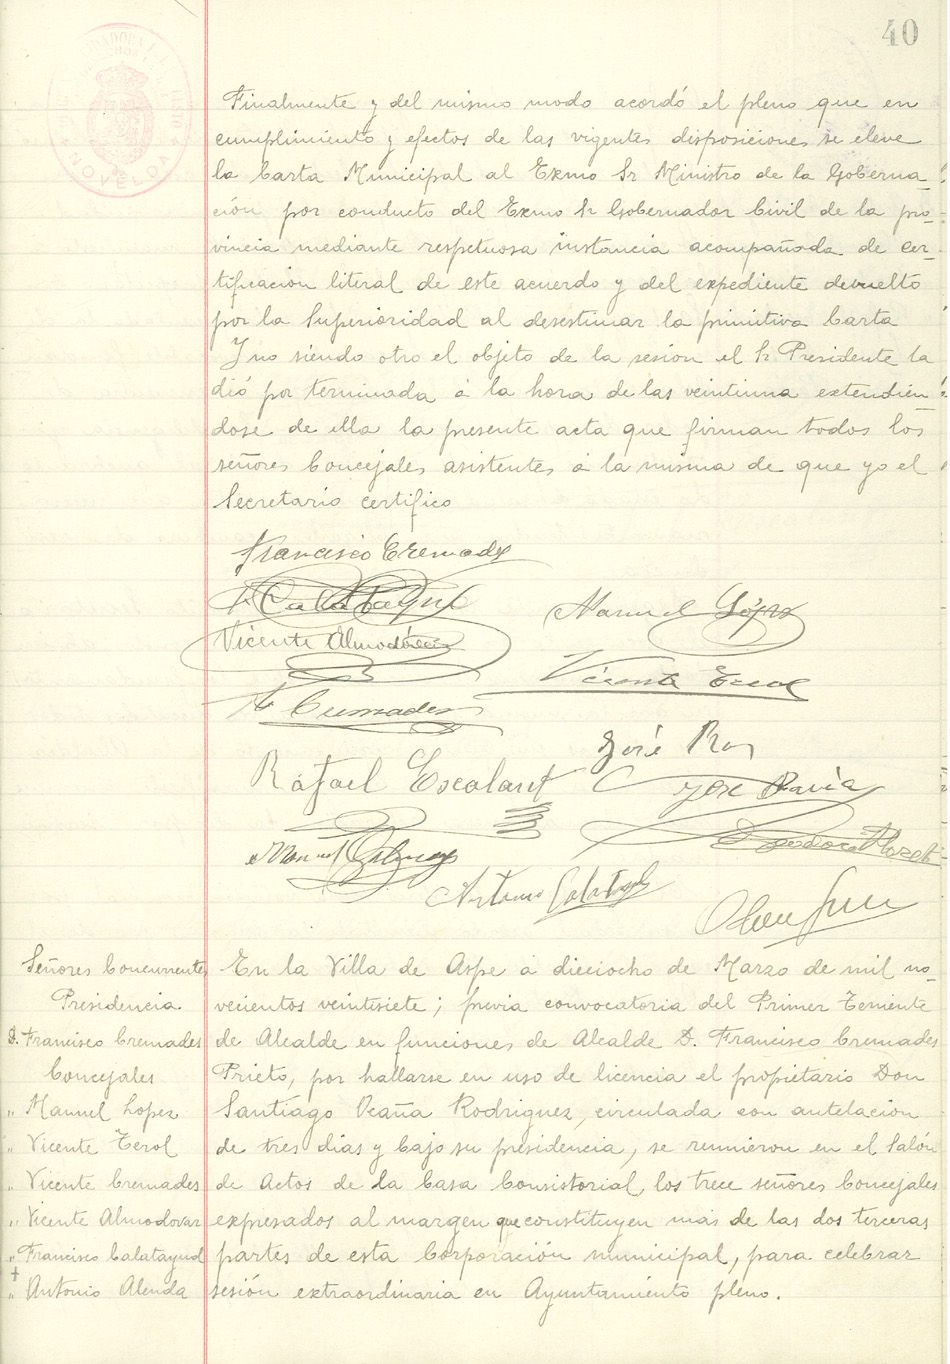 40
NOVELDA
Finalmente y del mismo modo acordó el pleno que en
cumplimiento y efectos de las vigentes disposiciones se eleve
la Carta Municipal al Exmo Sr Ministro de la Goberna-
ción por conducto del Exmo Sr Gobernador Civil de la pro-
vincia mediante respetuosa instancia acompañada de cer-
tificación literal de este acuerdo y del expediente devuelto
por la Superioridad al desestimar la primitiva Carta
Y no siendo otro el objeto de la sesión el Sr Presidente la
dió por terminada á la hora de las veintiuna extendien
dose de ella la presente acta que firman todos los
señores Concejales asistentes á la misma de que yo el
Secretario certifico
Francisco Cremades
F. Calatayud
Manuel López
Vicente Almodóvar
Vicente Terol
Cremades
José
Rafael Escolano
José Pavía
Manuel
Antonio Calatayud
Señores Concurrentes
Presidencia
D. Francisco Cremades
Concejales
" Manuel Lopez
" Vicente Terol
" Vicente Cremades
" Vicente Almodovar
" Francisco Calatayud
" Antonio Alenda
En la Villa de Aspe á dieciocho de Marzo de mil no-
vecientos veintisiete; previa convocatoria del Primer Teniente
de Alcalde en funciones de Alcalde D. Francisco Cremades
Prieto, por hallarse en uso de licencia el propietario Don
Santiago Ocaña Rodriguez, circulada con antelación
de tres dias y bajo su presidencia, se reunieron en el Salón
de Actos de la Casa Consistorial los trece señores Concejales
expresados al margen que constituyen mas de las dos terceras
partes de esta Corporación municipal, para celebrar
sesión extraordinaria en Ayuntamiento pleno.